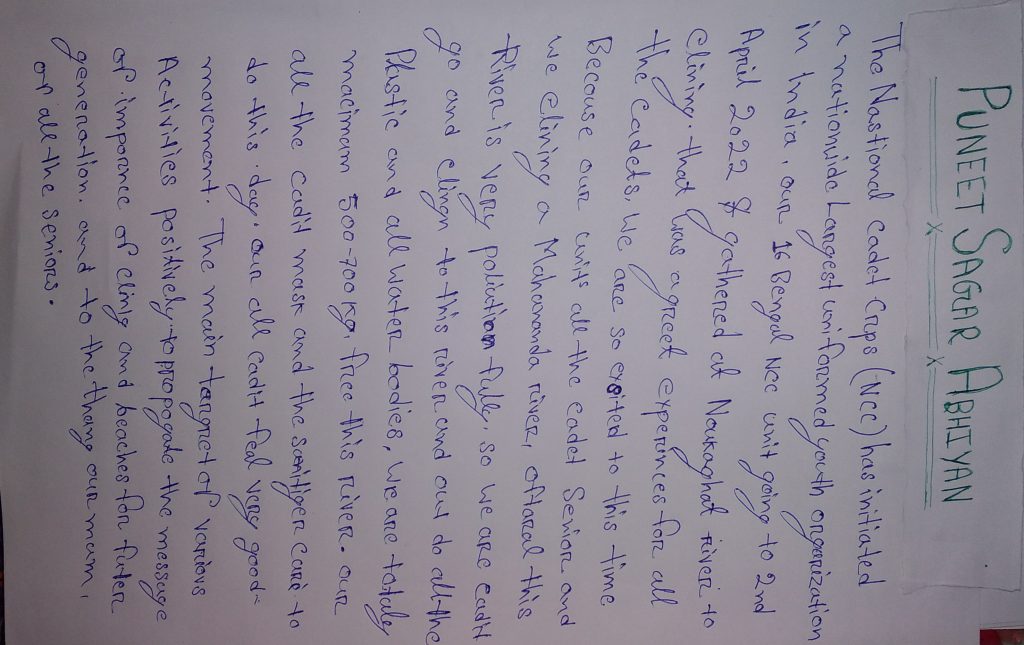 PUNEET SAGAR ABHIYAN
The Nastional cadet crps (Ncc) has initiated
a nationwide Largest uniformed youth organization
in India, our 16 Bengal Ncc unit going to 2nd
April 2022 & gathered at Noukaghat river to
clining. that was a greet experinces for all
the cadets, we are so exited to this time
Because our unit all the cadet Senior and
we clining a Mahananda river, oftaral this
River is very polution fully, so we are cadit
go and clingn to this river and out do all the
Plastic and all water bodies, we are totaly
macimam 500-700 kg, free this river. our
all the cadit mask and the sanitizer cari to
do this. day. our all cadit feel very good-
movement. The main targret of various
Activities positively to propogate the message
of imporence of cling and beaches for futer
generation. and to the thang our mam,
or all the seniors.